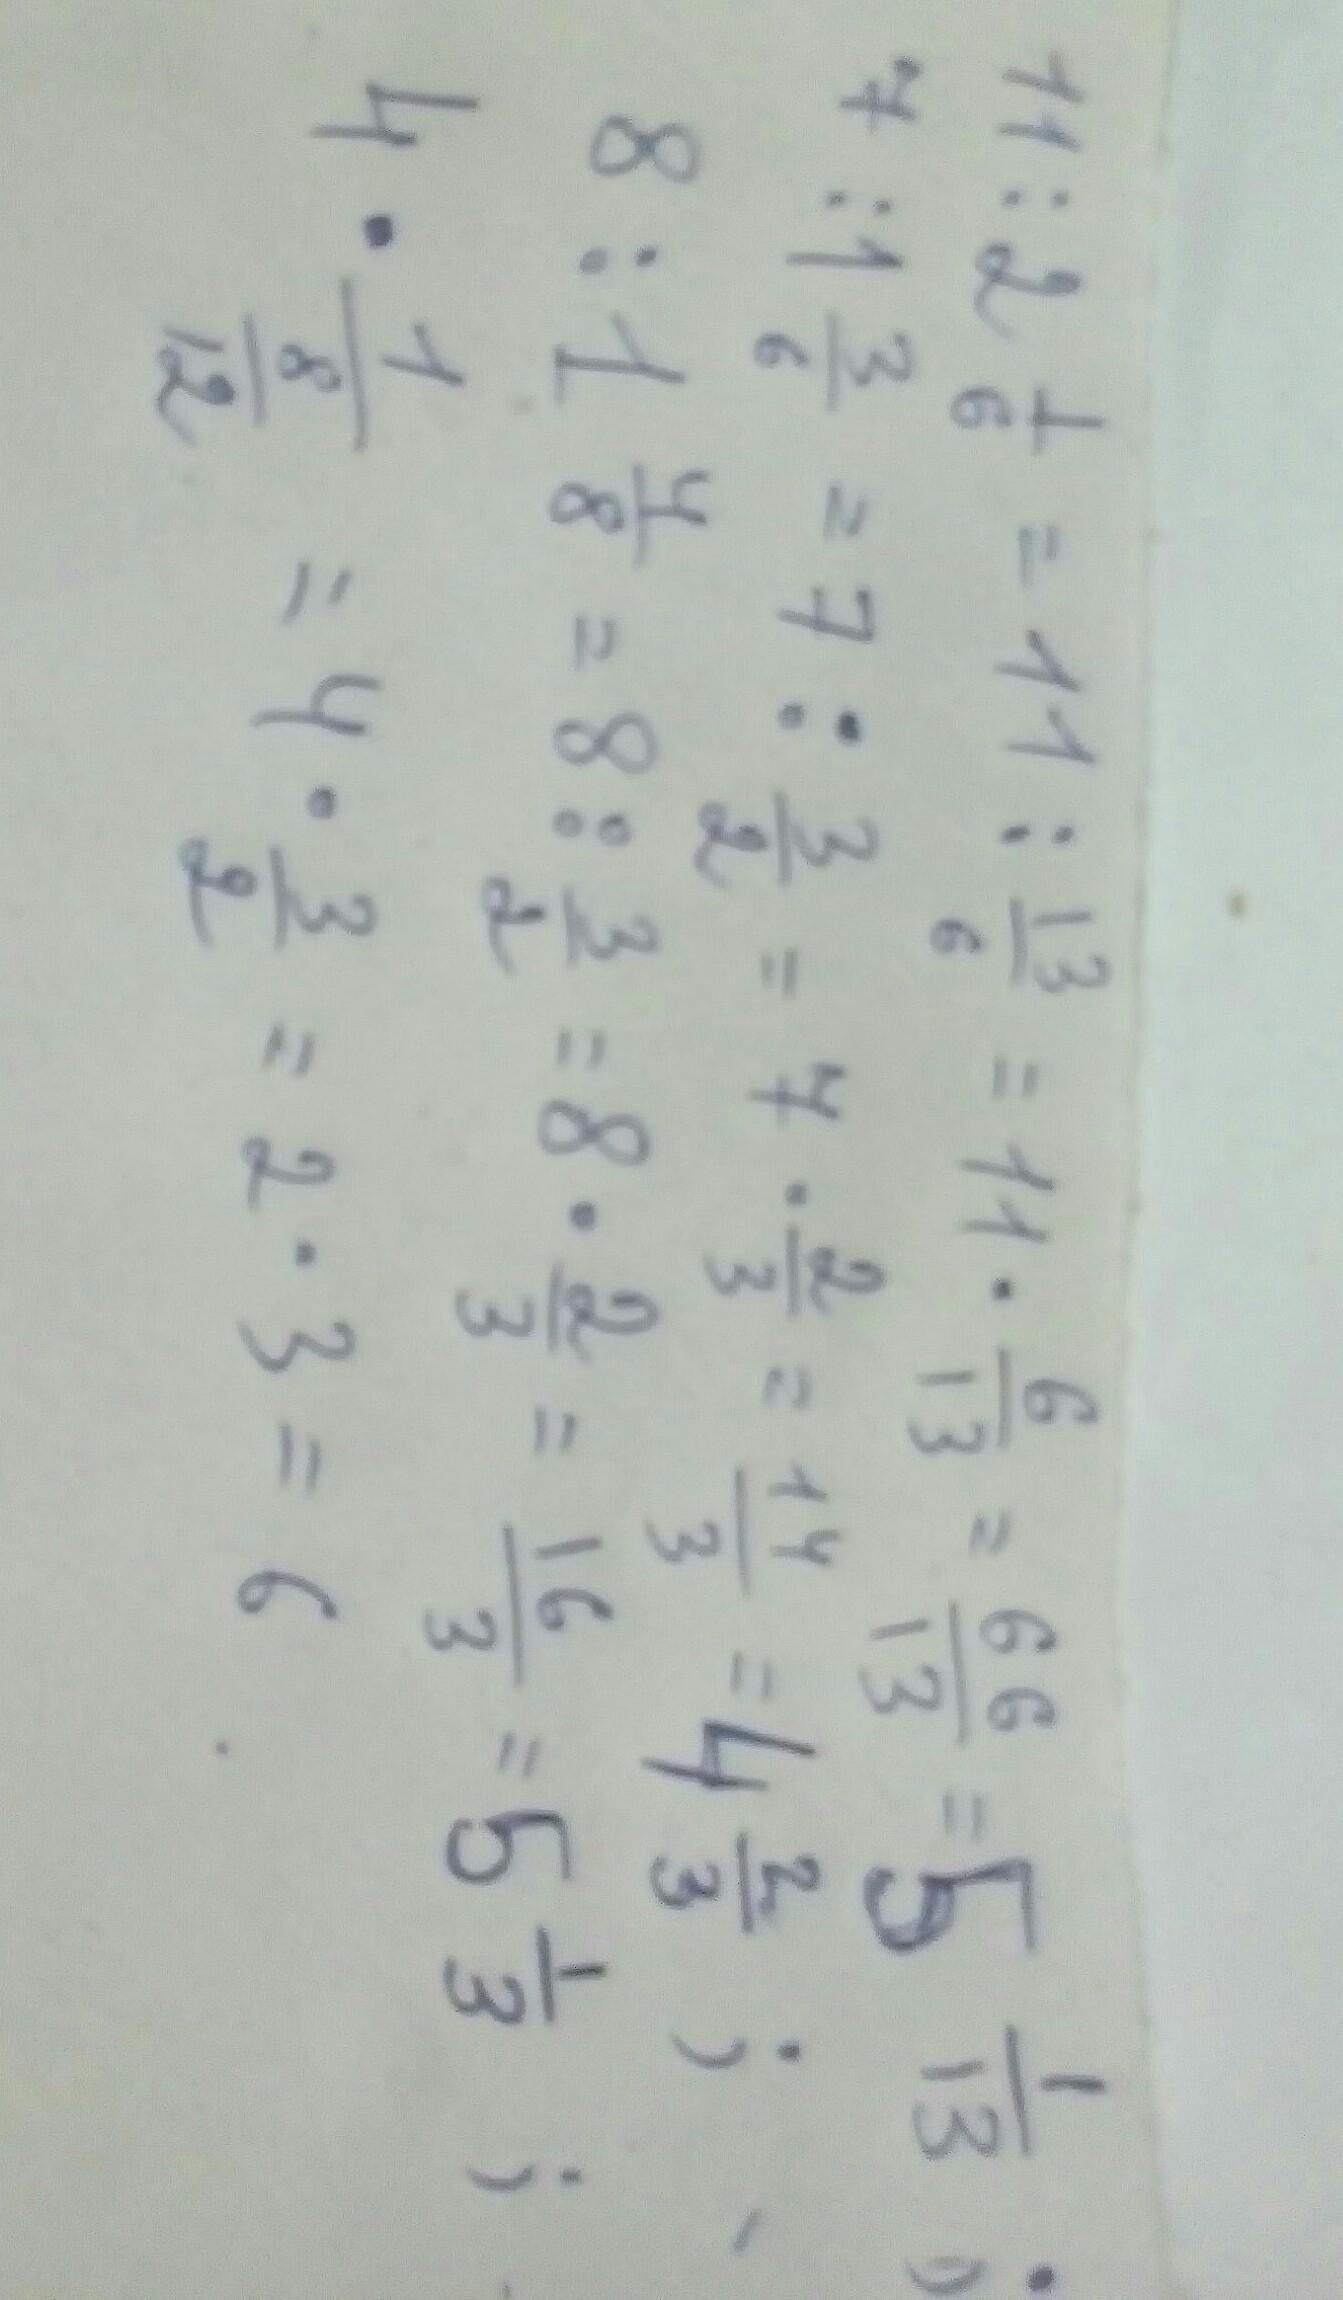 11 : 2 1/6 = 11 : 13/6 = 11 · 6/13 = 66/13 = 5 1/13 ;
7 : 1 3/6 = 7 : 3/2 = 7 · 2/3 = 14/3 = 4 2/3 ;
8 : 1 4/8 = 8 : 3/2 = 8 · 2/3 = 16/3 = 5 1/3 ;
4 · 1/8/12 = 4 · 3/2 = 2 · 3 = 6